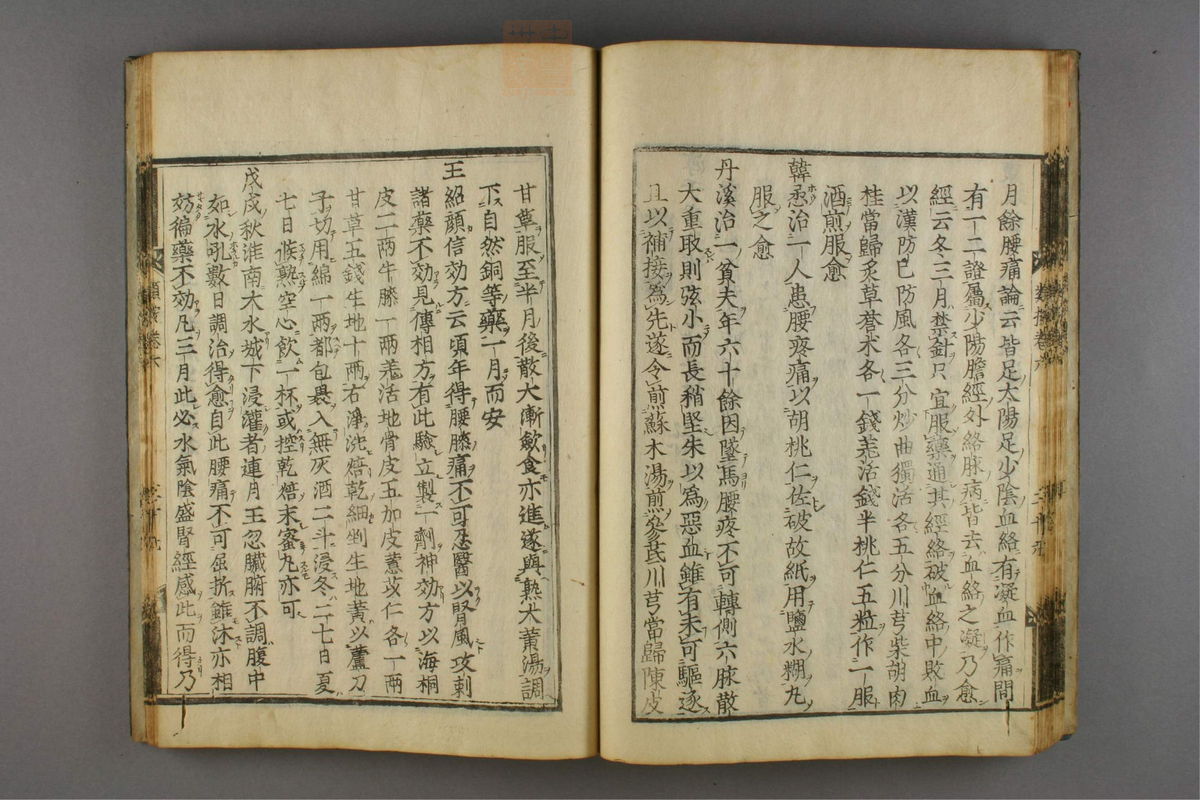 月餘腰痛論云皆足太陽足少陰血絡有凝血作痛間
有一二證屬少陽膽經外絡脉病皆去血絡之凝乃愈
經云冬三月禁針只宜服藥通其經絡破血絡中敗血
以漢防己防風各三分炒曲獨活各五分川芎柴胡肉
桂當歸炙草蒼朮各一錢羌活錢半桃仁五粒作一服
酒煎服愈
韓丞治一人患腰疼痛以胡桃仁佐破故紙用鹽水糊丸
服之愈
丹溪治一貧夫年六十餘因墜馬腰疼不可轉側六脉散
大重取則弦小而長稍堅朱以為惡血雖有未可驅逐
且以補接為先遂令煎蘇木湯煎參芪川芎當歸陳皮
甘草服至半月後散大漸歛食亦進遂與熟大黄湯調
下自然銅等藥一月而安
王紹顔信効方云頃年得腰膝痛不可忍醫以腎風攻刺
諸藥不効見傳相方有此驗立製一劑神効方以海桐
皮二兩牛膝一兩羌活地骨皮五加皮薏苡仁各一兩
甘草五錢生地十兩右淨洗焙乾細剉生地黄以蘆刀
子切用綿一兩都包裹入無灰酒二斗浸冬二七日夏
七日候熟空心飲一杯或控乾焙末蜜丸亦可
戊戌秋淮南大水城下浸灌者連月王忽臟腑不調腹中
如水吼數日調治得愈自此腰痛不可屈折雖沐亦相
妨徧藥不効凡三月此必水氣陰盛腎經感此而得乃